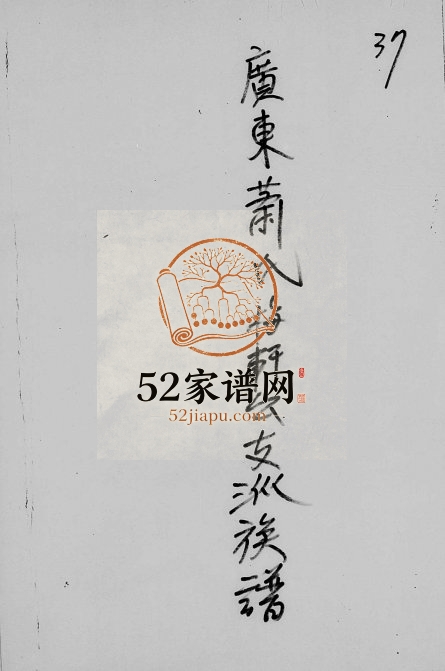 37
廣東蕭氏梅軒公支派族譜
52家谱网
52jiapu.com